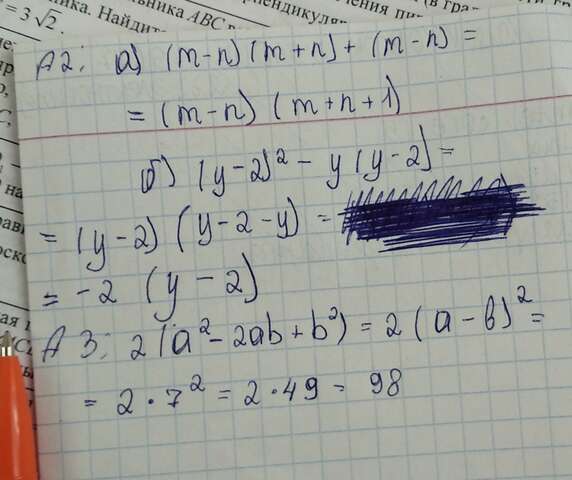 = 3√2.
ника. Найдит
ьника ABC
рпендикуля
A2: а) (m-n)(m+n)+(m-n)=
=(m-n)(m+n+1)
б) (y-2)² - y(y-2)=
=(y-2)(y-2-y)=
=-2(y-2)
A3: 2(a²-2ab+b²)=2(a-b)²=
=2·7²=2·49=98